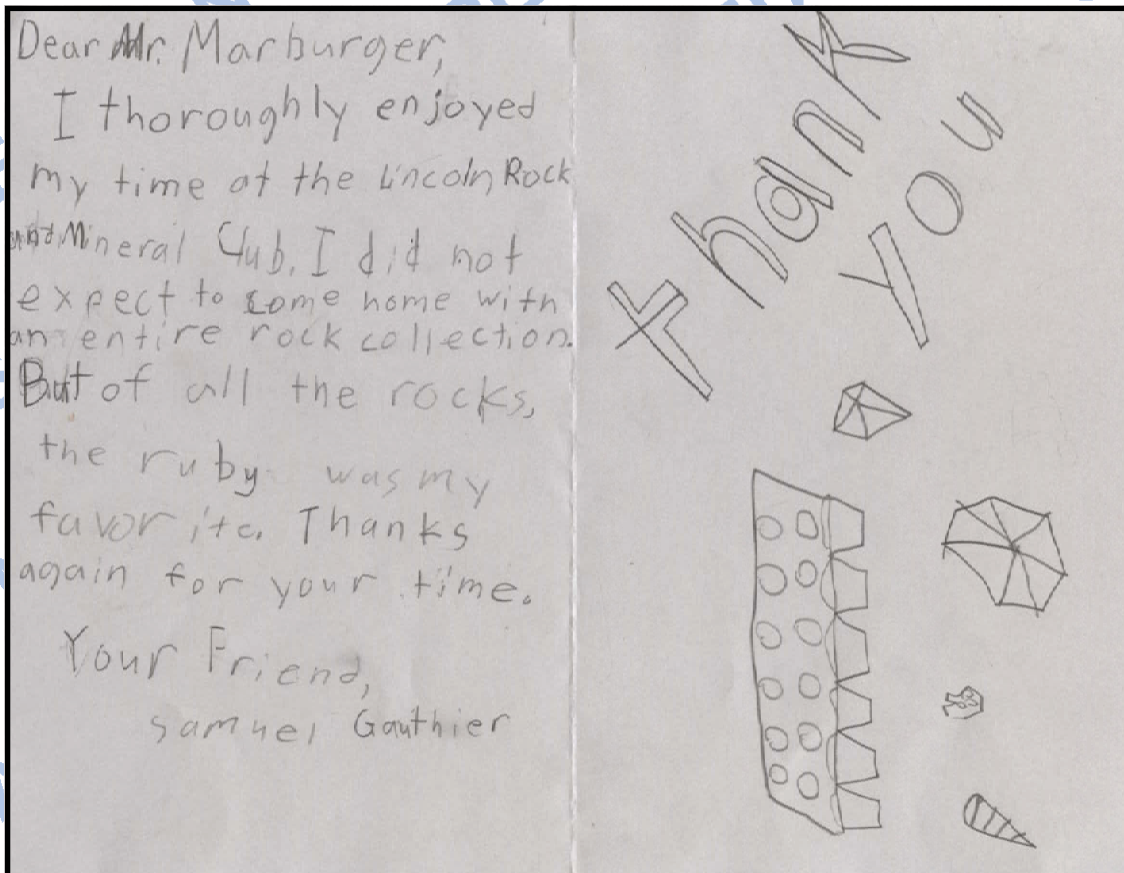 Dear Mr. Marburger,
I thoroughly enjoyed
my time at the Lincoln Rock
and Mineral Club. I did not
expect to come home with
an entire rock collection.
But of all the rocks,
the ruby was my
favorite. Thanks
again for your time.
Your Friend,
Samuel Gauthier
Thank
you